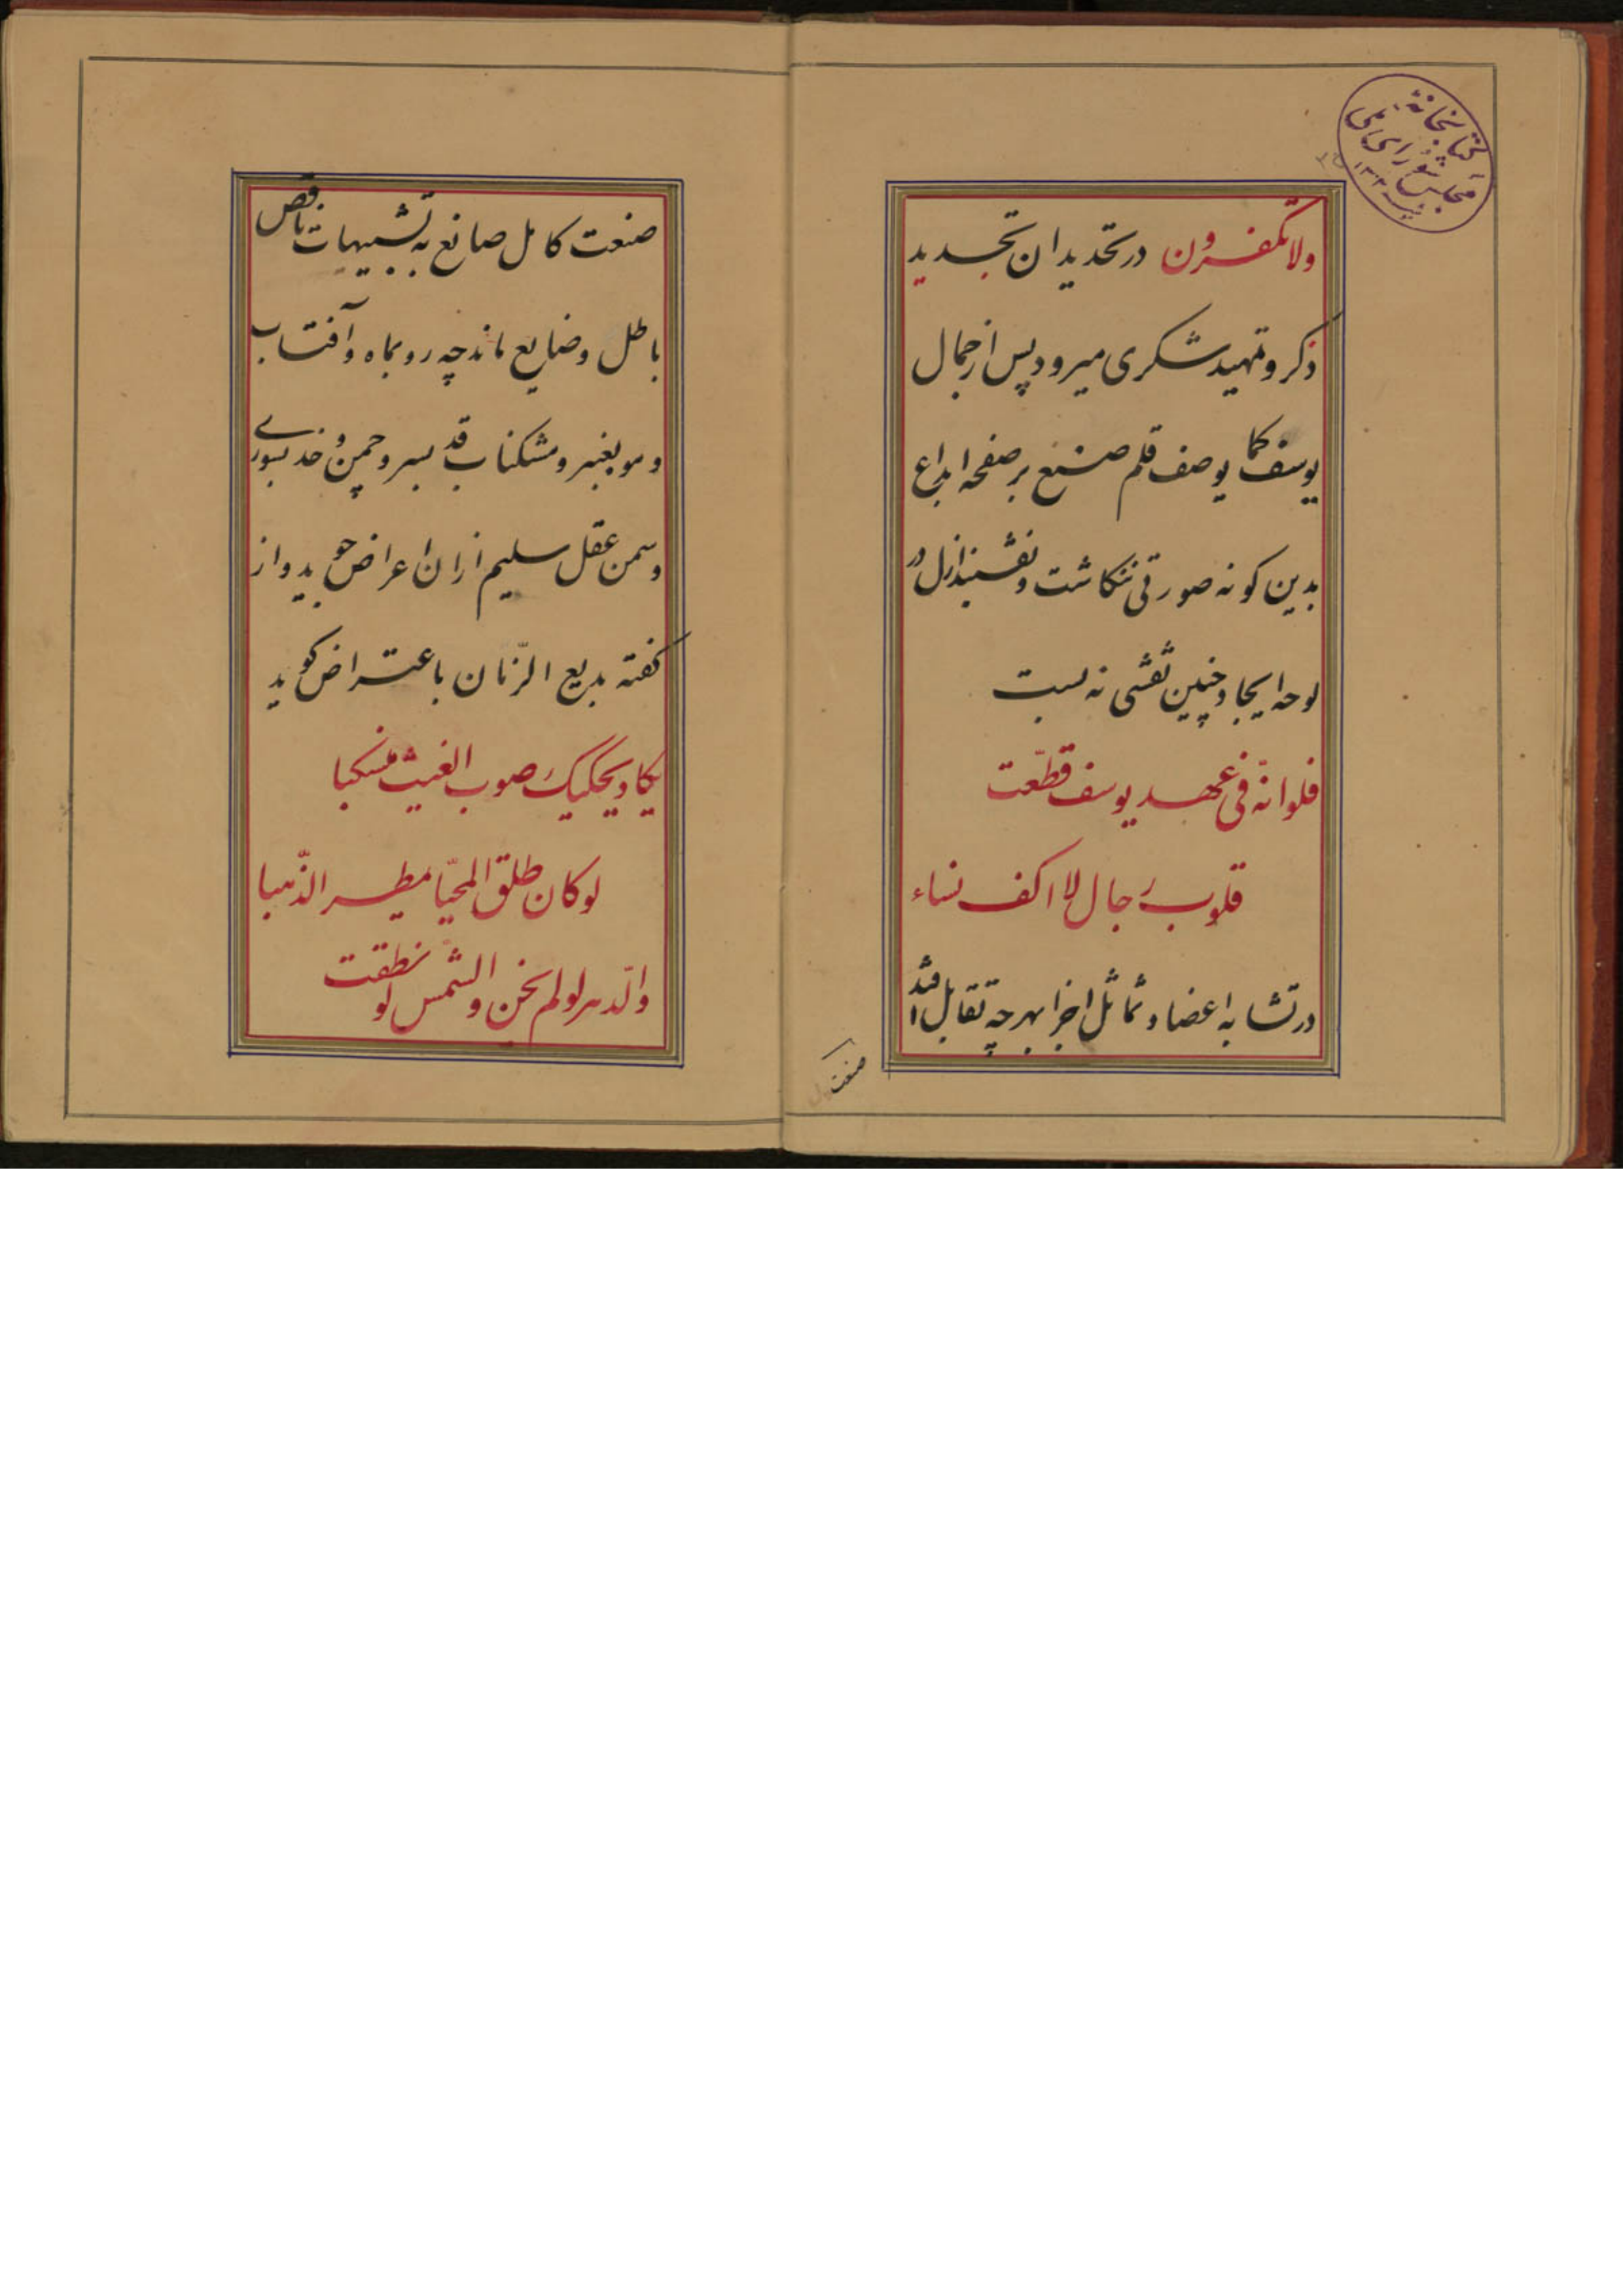 کتابخانهٔ
مجلس شورای ملی
ولا تکفرون در تحدید ان تجدید
ذکر و تمهید شکری میرود پس از جمال
یوسف کما یوصف قلم صنع بر صفحه ابداع
بدین کونه صورتی ننکاشت و نقشبند ازل در
لوحه ایجاد چنین نقشی نه بست
فلو انّه فی عهد یوسف قطّعت
قلوب رجال لا اکف نساء
در تشابه اعضاء و تماثل اجزا بهر چه تقابل افتد
صنعت
صنعت کامل صانع به تشبیهات ناقص
باطل و ضایع ماند چه رو بماه و آفتاب
و مو بعنبر و مشکناب قد بسرو چمن و خد بسوری
و سمن عقل سلیم از ان اعراض جوید و از
کفته بدیع الزّمان با عتراض کوید
یکاد یحکیک صوب الغیث منسکبا
لو کان طلق المحیّا مطر الذّهبا
والّدهر لو لم یخن و الشّمس لو نطقت